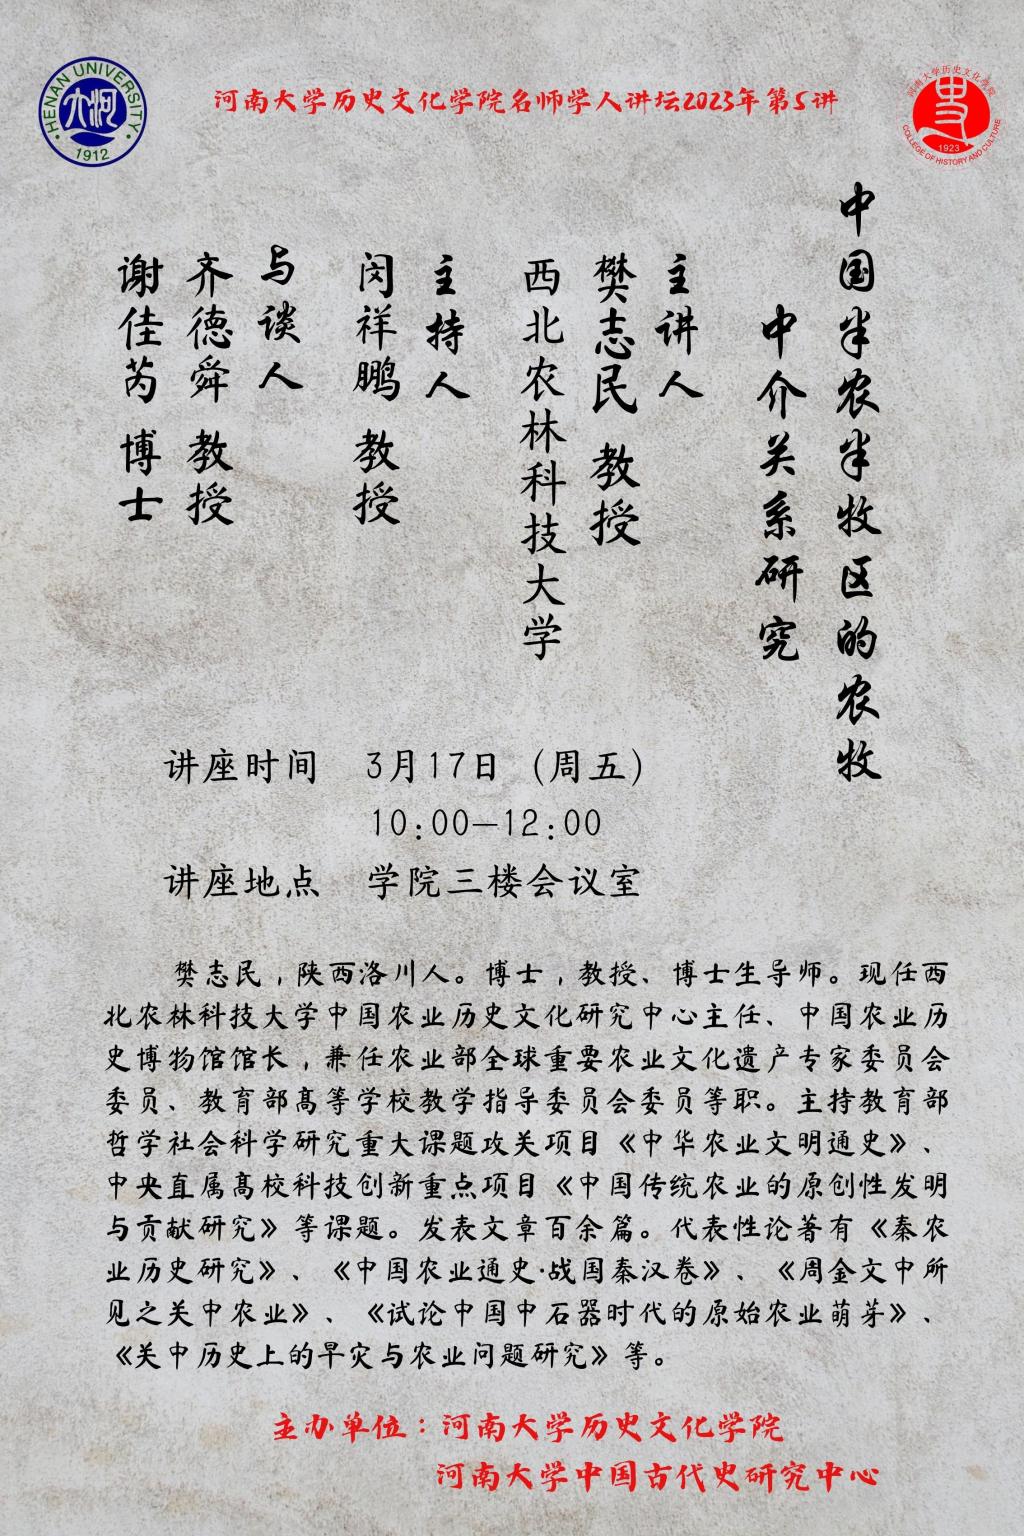 HENAN UNIVERSITY
大河
1912
河南大学历史文化学院名师学人讲坛2023年第5讲
河南大学历史文化学院
1923
COLLEGE OF HISTORY AND CULTURE
中国半农半牧区的农牧
中介关系研究
主讲人
樊志民 教授
西北农林科技大学
主持人
闵祥鹏 教授
与谈人
齐德舜 教授
谢佳芮 博士
讲座时间 3月17日（周五）
10:00—12:00
讲座地点 学院三楼会议室
樊志民，陕西洛川人。博士，教授、博士生导师。现任西
北农林科技大学中国农业历史文化研究中心主任、中国农业历
史博物馆馆长，兼任农业部全球重要农业文化遗产专家委员会
委员、教育部高等学校教学指导委员会委员等职。主持教育部
哲学社会科学研究重大课题攻关项目《中华农业文明通史》、
中央直属高校科技创新重点项目《中国传统农业的原创性发明
与贡献研究》等课题。发表文章百余篇。代表性论著有《秦农
业历史研究》、《中国农业通史·战国秦汉卷》、《周金文中所
见之关中农业》、《试论中国中石器时代的原始农业萌芽》、
《关中历史上的旱灾与农业问题研究》等。
主办单位：河南大学历史文化学院
河南大学中国古代史研究中心